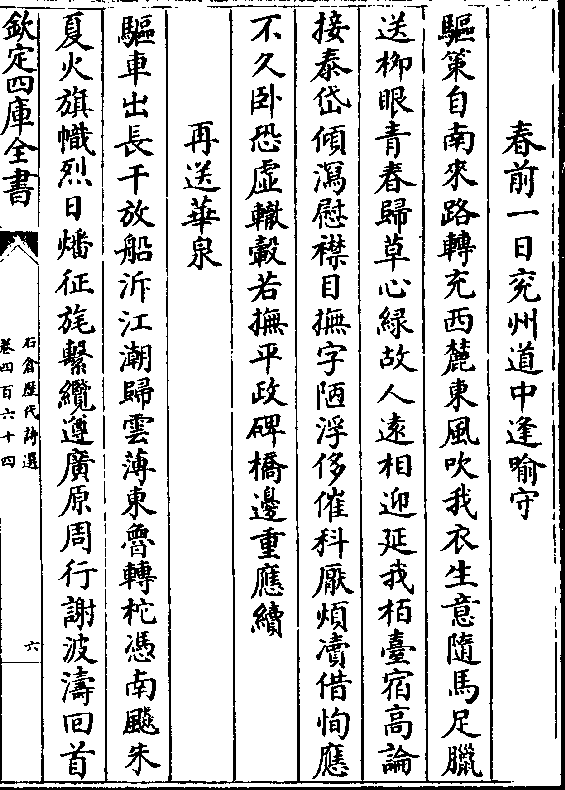 春前一日兖州道中逢喻守
驅策自南來路轉兖西麓東風吹我衣生意隨馬足臘
送柳眼青春歸草心緑故人遠相迎延我栢臺宿高論
接泰岱傾瀉慰襟目撫字陋浮侈催科厭煩瀆借恂應
不久卧恐虚轍轂若撫平政碑橋邊重應續
再送華泉
驅車出長干放船泝江潮歸雲薄東魯轉柁憑南飈朱
夏火旗幟烈日燔征旄繫纜遵廣原周行謝波濤回首
欽定四庫全書
石倉歴代詩選
卷四百六十四
六